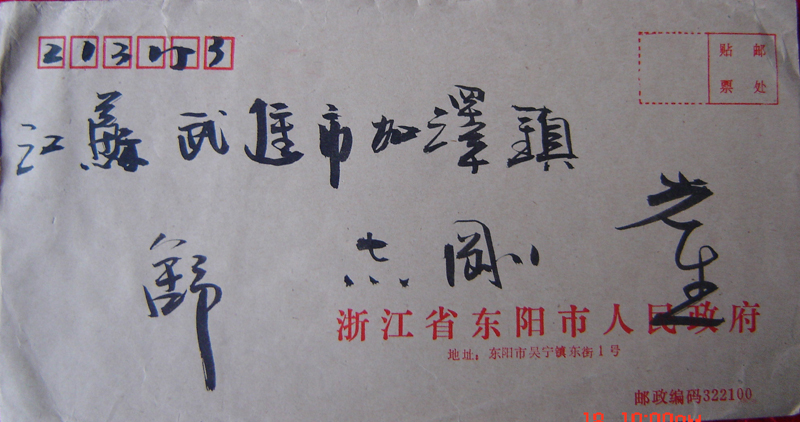 213153
贴 邮
票 处
江蘇武進市加澤鎮
舒志剛先生
浙江省东阳市人民政府
地址：东阳市吴宁镇东街1号
邮政编码322100